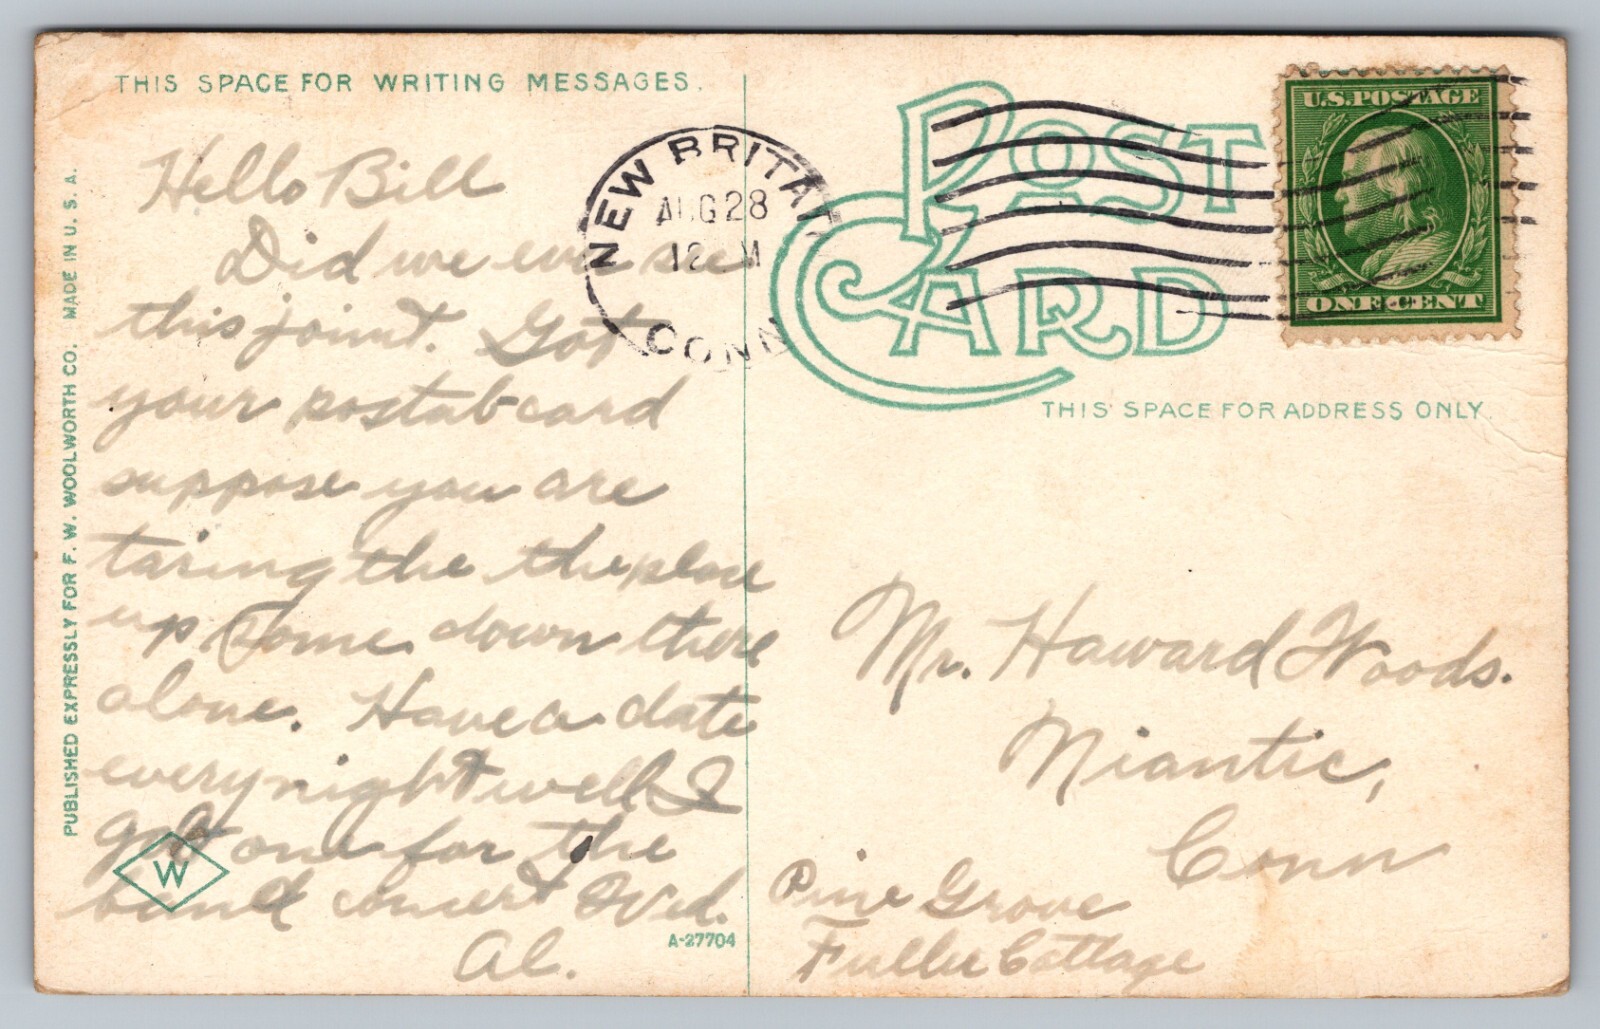 THIS SPACE FOR WRITING MESSAGES.
Hello Bill
Did we ever see
this joint. Got
your postal-card
suppose you are
taring the the place
up some down there
alone. Have a date
every night well I
got one for the
band concert Wed.
Al.
PUBLISHED EXPRESSLY FOR F. W. WOOLWORTH CO. MADE IN U. S. A.
W
A-27704
NEW BRITAIN
AUG 28
12 M
CONN
POST
CARD
U.S. POSTAGE
ONE CENT
THIS SPACE FOR ADDRESS ONLY.
Mr. Haward Woods.
Niantic,
Conn
Pine Grove
Fuller Cottage